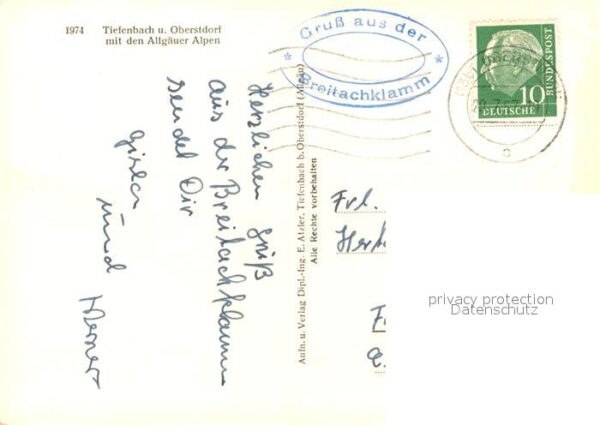 1974 Tiefenbach u. Oberstdorf
mit den Allgäuer Alpen
Gruß aus der
* Breitachklamm *
10
DEUTSCHE
BUNDESPOST
Herzlichen Gruß
aus der Breitachklamm
sendet Dir
Gisela
und Werner
Aufn. u. Verlag Dipl.-Ing. E. Atzler, Tiefenbach b. Oberstdorf (Allgäu)
Alle Rechte vorbehalten
Frl.
privacy protection
Datenschutz